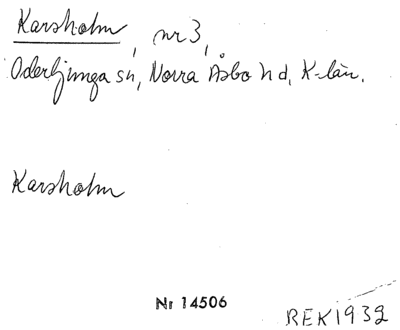 Karsholm, nr 3,
Oderljunga sn, Norra Åsbo hd, K-län.
Karsholm
Nr 14506
REK 1932